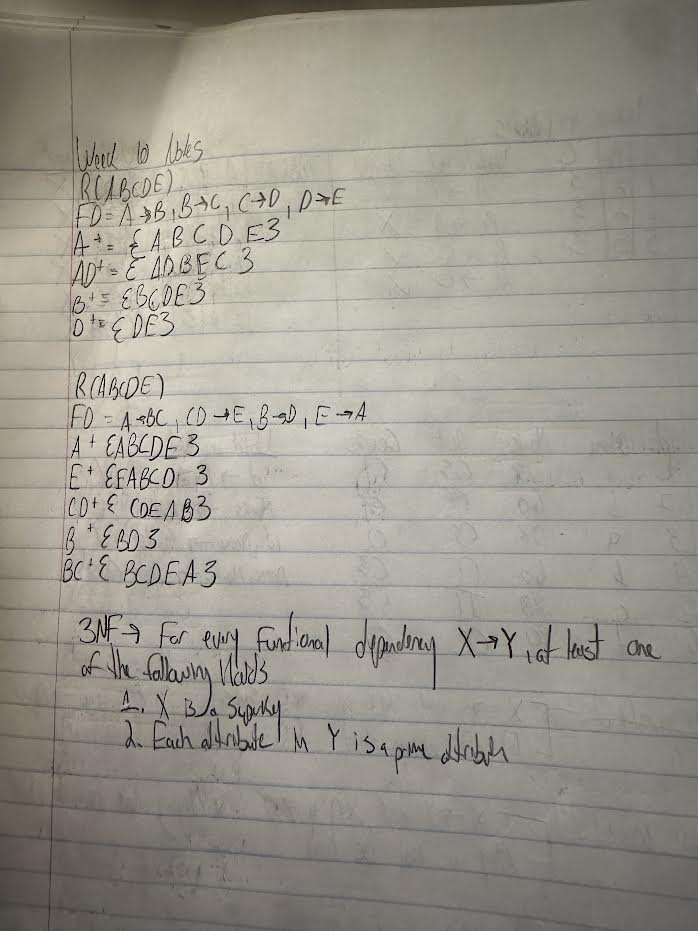 Week 10 Notes
R(ABCDE)
FD = A→B, B→C, C→D, D→E
A+ = {A B C D E}
AD+ = {ADBEC}
B+ = {BCDE}
D+ = {DE}
R(ABCDE)
FD = A→BC, CD→E, B→D, E→A
A+ {ABCDE}
E+ {EABCD}
CD+ {CDEAB}
B+ {BD}
BC+ {BCDEA}
3NF → For every functional dependency X→Y, at least one
of the following Holds
1. X is a Superkey
2. Each attribute in Y is a prime attribute